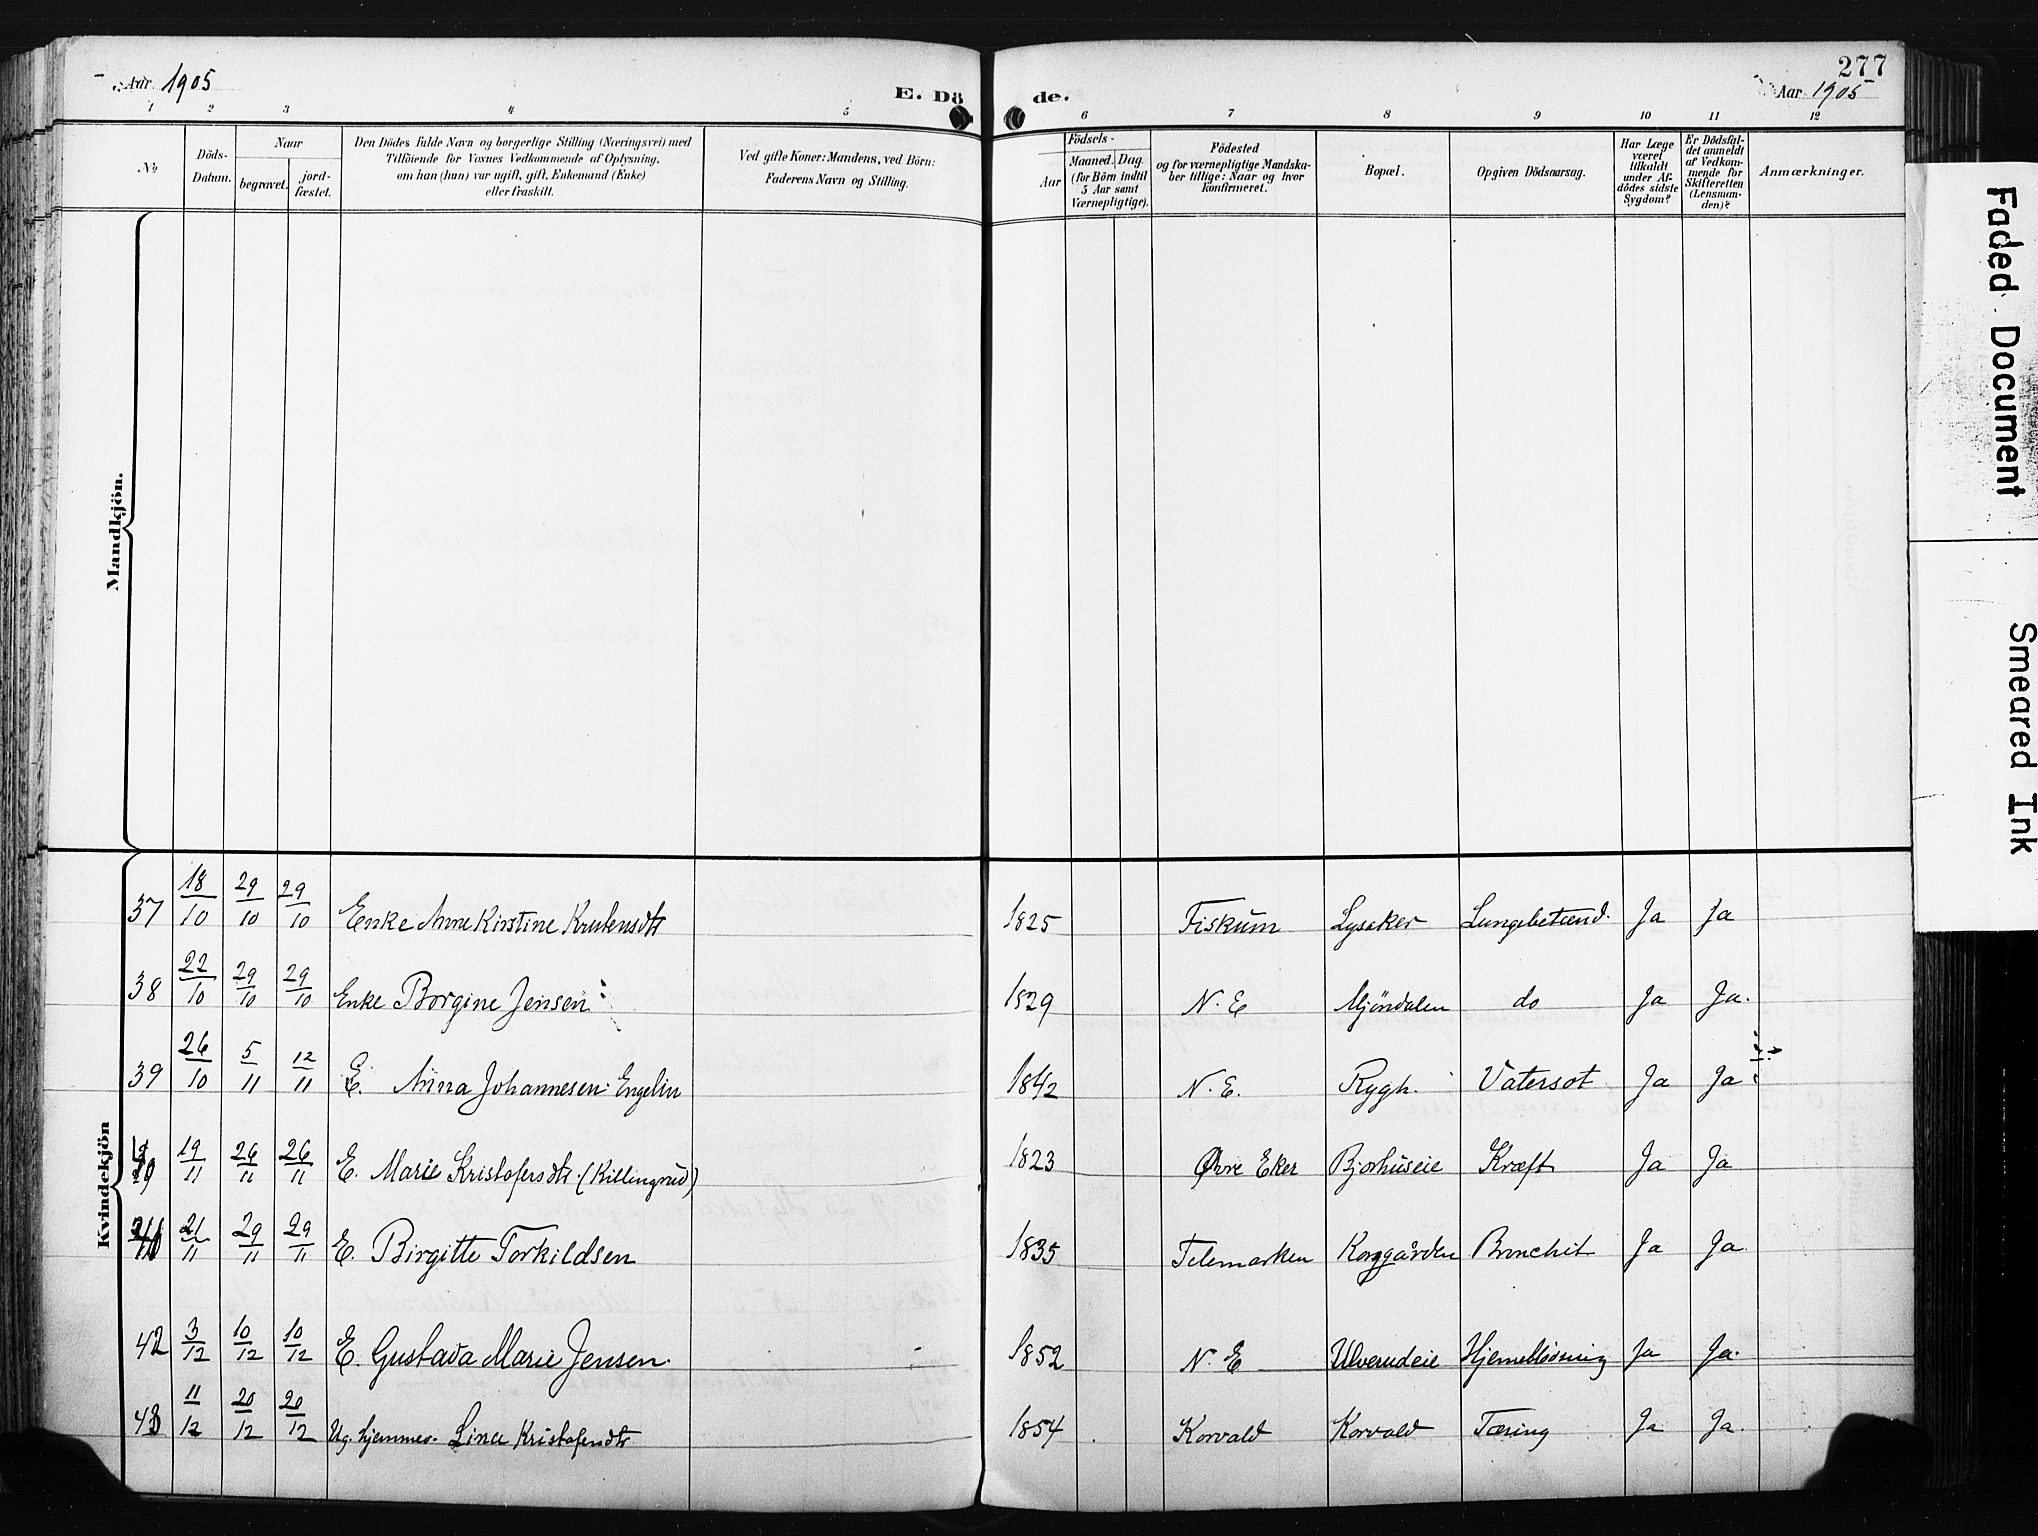 277
Aar 1905
E. Dö de.
Aar 1905
1 2 3 4 5 6 7 8 9 10 11 12
No
Döds-Datum.
Naar
begravet.
jord-fæstet.
Den Dödes fulde Navn og borgerlige Stilling (Næringsvei) med
Tilföiende for Voxnes Vedkommende af Oplysning,
om han (hun) var ugift, gift, Enkemand (Enke)
eller fraskilt.
Ved gifte Koner: Mandens, ved Börn:
Faderens Navn og Stilling.
Födsels-
Aar
Maaned. Dag.
(for Börn indtil
5 Aar samt
Værnepligtige).
Födested
og for værnepligtige Mandska-
ber tillige: Naar og hvor
konfirmeret.
Bopæl.
Opgiven Dödsaarsag.
Har Læge
været
tilkaldt
under Af-
dödes sidste
Sygdom?
Er Dödsfal-
det anmeldt
af Vedkom-
mende for
Skifteretten
(Lensman-
den)?
Anmærkninger.
Mandkjön.
Kvindekjön
37 18/10 29/10 29/10 Enke Anne Kirstine Knutensdtr 1825 Fiskum Lysaker Lungebetænd. Ja Ja
38 22/10 29/10 29/10 Enke Borgine Jensen 1829 N. E Mjöndalen do Ja Ja.
39 26/10 5/11 12/11 E. Anna Johannesen Engelin 1842 N. E. Rygh. Vatersot Ja Ja
19/11 26/11 26/11 E. Marie Kristofersdtr (Killingrud) 1823 Øvre Eker Bjorhuseie Kræft Ja Ja
21/11 29/11 29/11 E. Birgitte Torkildsen 1835 Telemarken Korggården Bronchit Ja Ja.
42 3/12 10/12 10/12 E. Gustava Marie Jensen. 1852 N. E Ulverudeie Hjerneblödning Ja Ja.
43 11/12 20/12 20/12 Ug. hjemmev. Line Kristofersdtr 1854 Korvald Korvald Tæring Ja Ja.
Faded Document
Smeared Ink